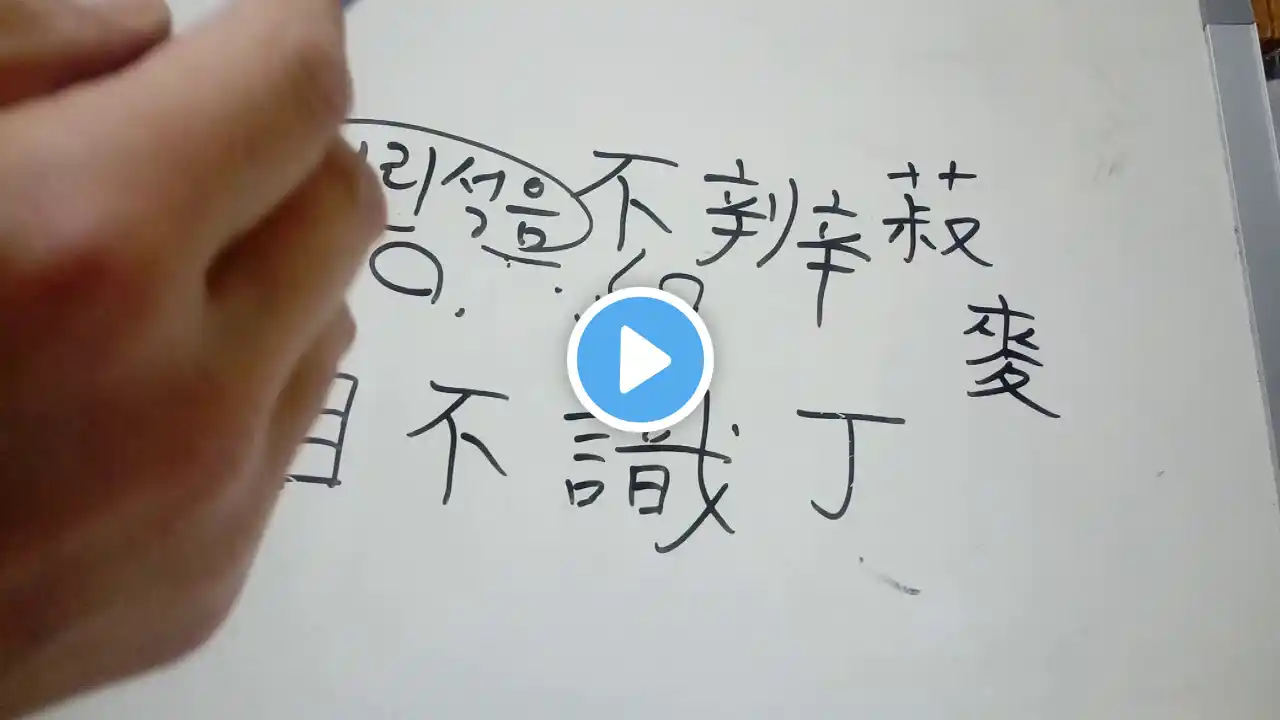 리석음 不辨菽
麥
目不識丁